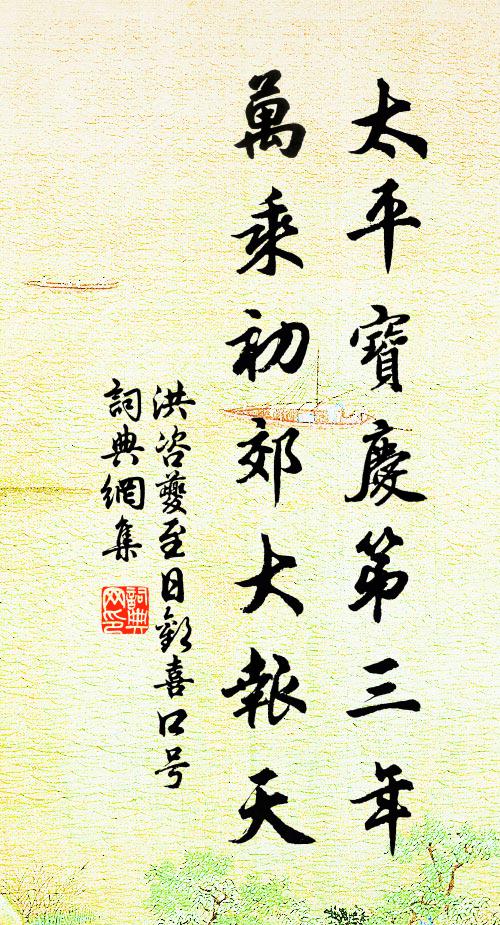 太平寶慶第三年
萬乘初郊大報天
洪咨夔至日歡喜口号
詞典網集
詞典
网印